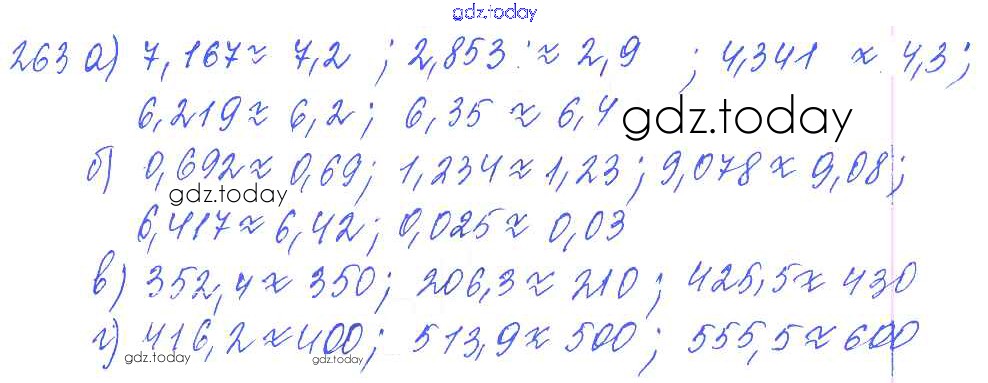 gdz.today
263 а) 7,167 ≈ 7,2 ; 2,853 ≈ 2,9 ; 4,341 ≈ 4,3;
6,219 ≈ 6,2; 6,35 ≈ 6,4 gdz.today
б) 0,692 ≈ 0,69; 1,234 ≈ 1,23; 9,078 ≈ 9,08;
gdz.today
6,417 ≈ 6,42; 0,025 ≈ 0,03
в) 352,4 ≈ 350; 206,3 ≈ 210; 425,5 ≈ 430
г) 416,2 ≈ 400; 513,9 ≈ 500; 555,5 ≈ 600
gdz.today gdz.today